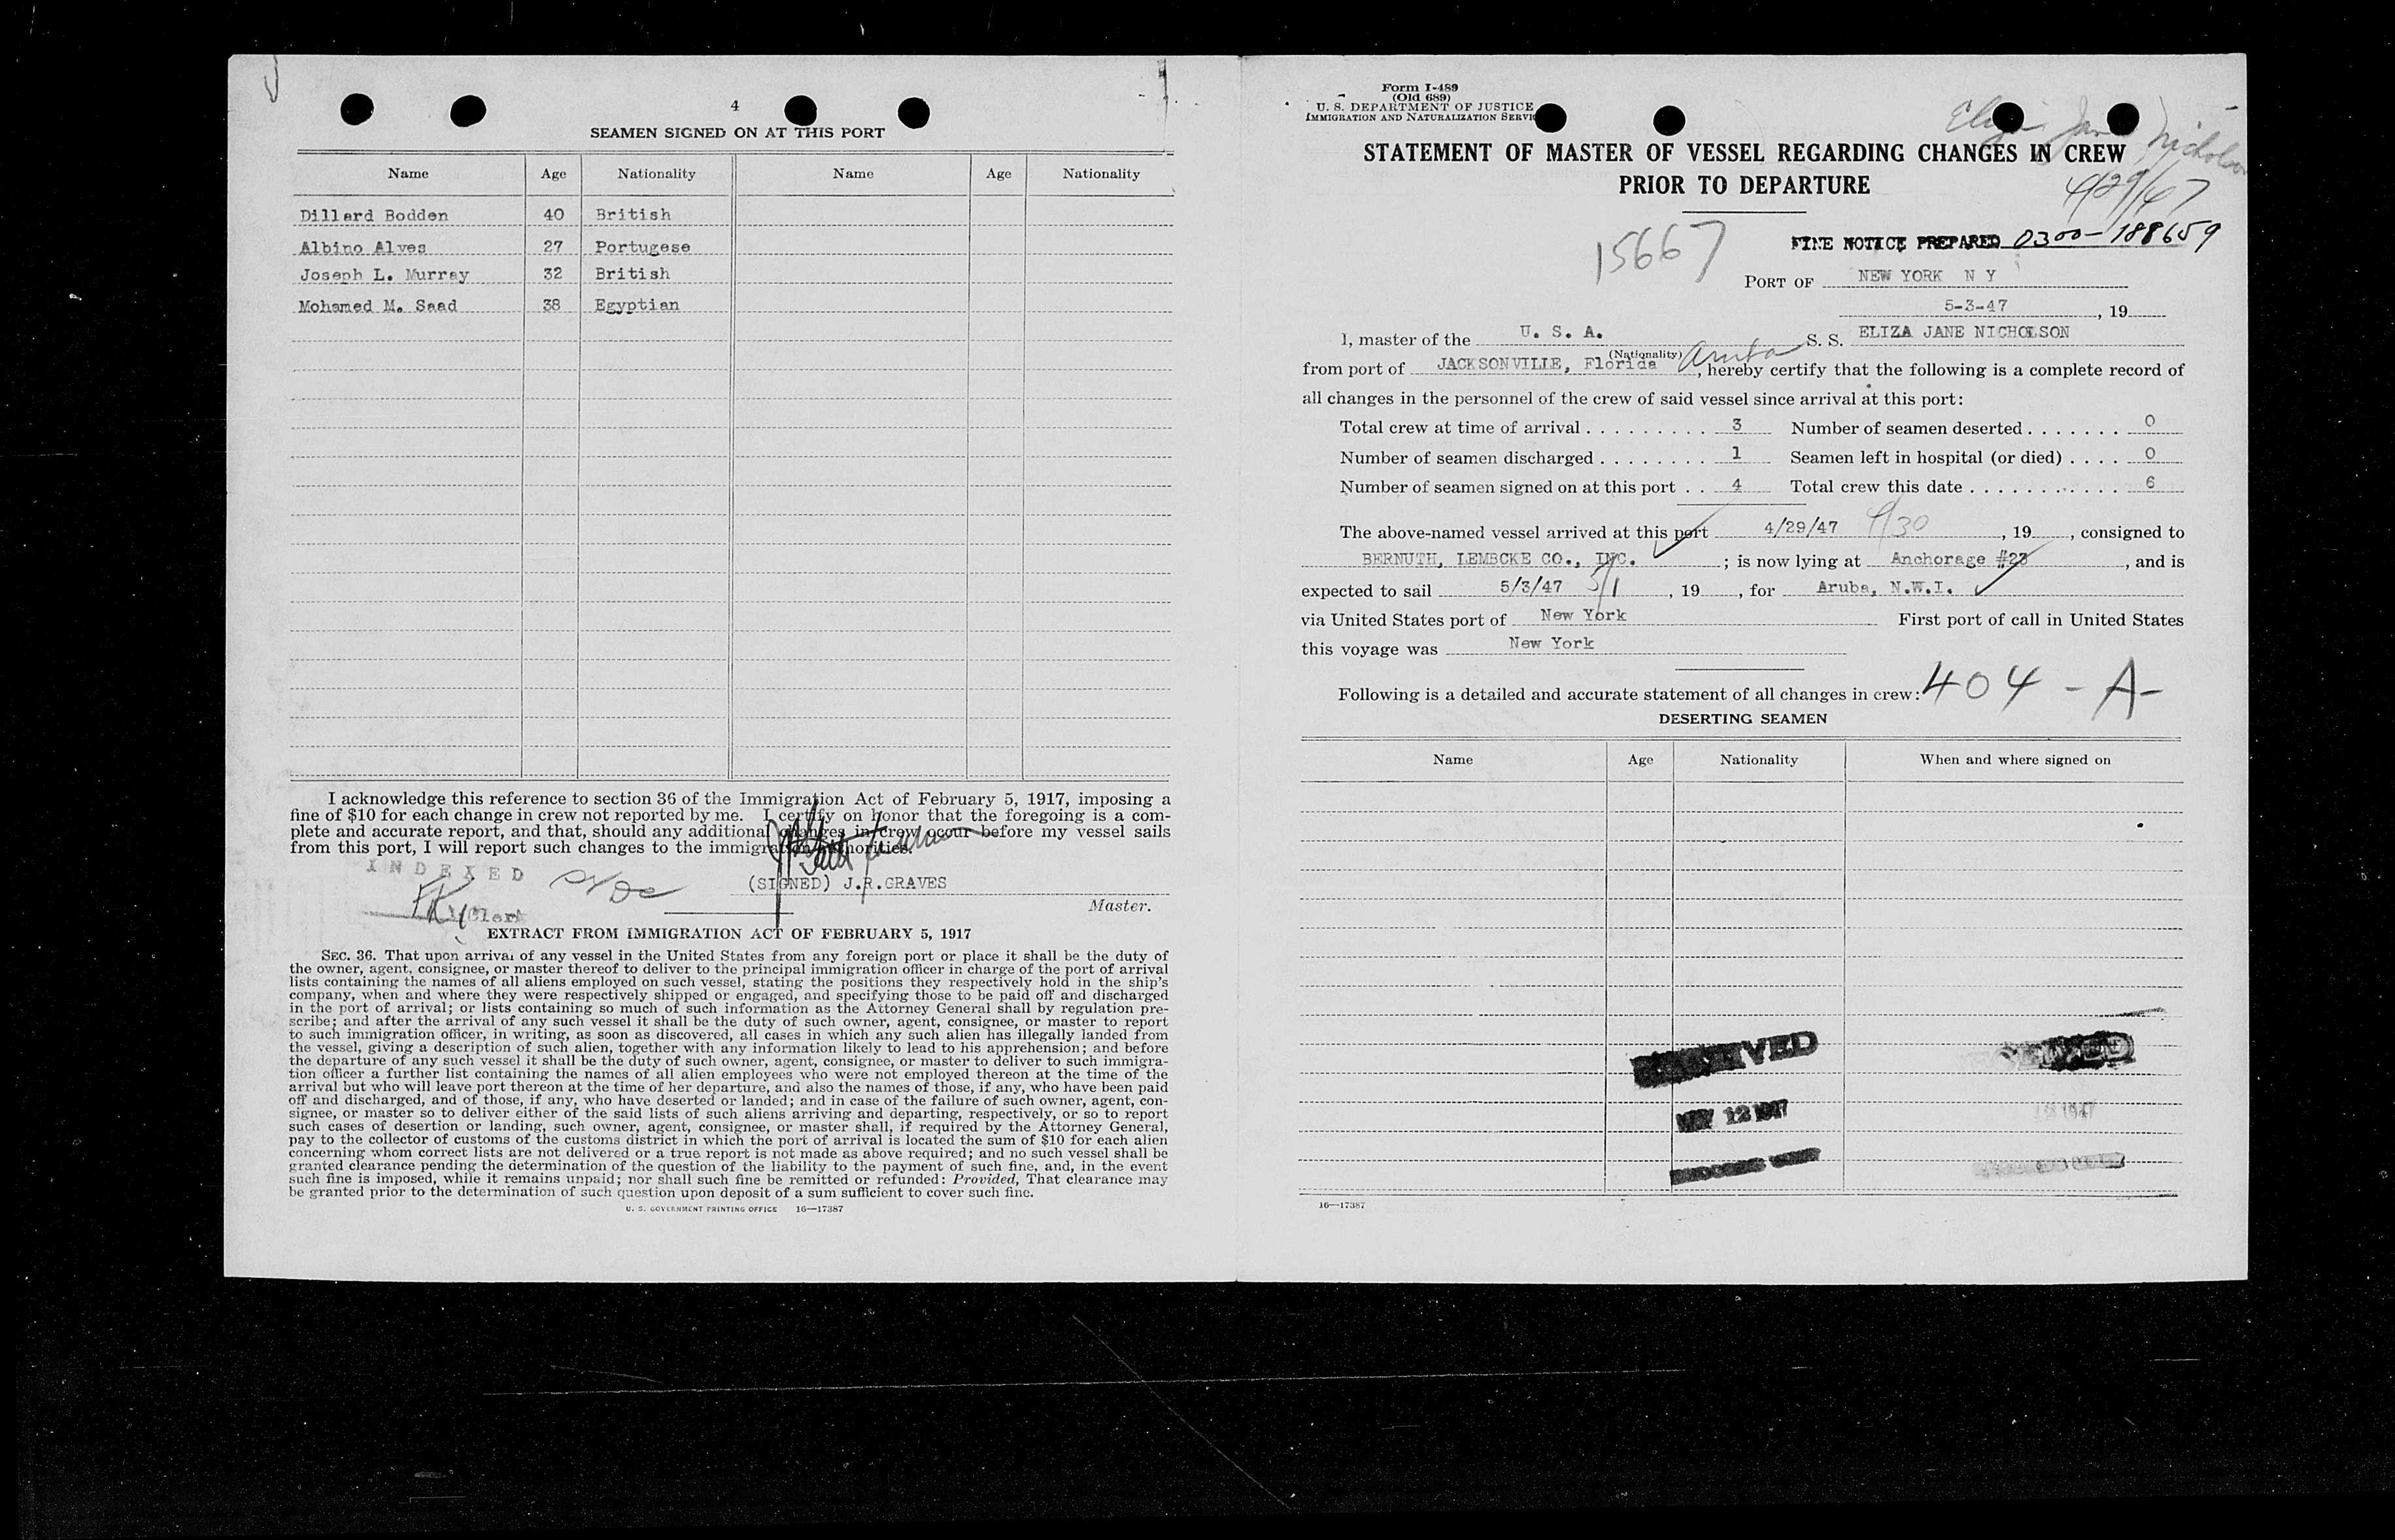 4
SEAMEN SIGNED ON AT THIS PORT
Name Age Nationality Name Age Nationality
Dillard Bodden 40 British
Albino Alves 27 Portugese
Joseph L. Murray 32 British
Mohamed M. Saad 38 Egyptian
I acknowledge this reference to section 36 of the Immigration Act of February 5, 1917, imposing a
fine of $10 for each change in crew not reported by me. I certify on honor that the foregoing is a com-
plete and accurate report, and that, should any additional changes in crew occur before my vessel sails
from this port, I will report such changes to the immigration authorities.
INDEXED
(SIGNED) J.R.GRAVES
Clerk
Master.
EXTRACT FROM IMMIGRATION ACT OF FEBRUARY 5, 1917
SEC. 36. That upon arrival of any vessel in the United States from any foreign port or place it shall be the duty of
the owner, agent, consignee, or master thereof to deliver to the principal immigration officer in charge of the port of arrival
lists containing the names of all aliens employed on such vessel, stating the positions they respectively hold in the ship's
company, when and where they were respectively shipped or engaged, and specifying those to be paid off and discharged
in the port of arrival; or lists containing so much of such information as the Attorney General shall by regulation pre-
scribe; and after the arrival of any such vessel it shall be the duty of such owner, agent, consignee, or master to report
to such immigration officer, in writing, as soon as discovered, all cases in which any such alien has illegally landed from
the vessel, giving a description of such alien, together with any information likely to lead to his apprehension; and before
the departure of any such vessel it shall be the duty of such owner, agent, consignee, or master to deliver to such immigra-
tion officer a further list containing the names of all alien employees who were not employed thereon at the time of the
arrival but who will leave port thereon at the time of her departure, and also the names of those, if any, who have been paid
off and discharged, and of those, if any, who have deserted or landed; and in case of the failure of such owner, agent, con-
signee, or master so to deliver either of the said lists of such aliens arriving and departing, respectively, or so to report
such cases of desertion or landing, such owner, agent, consignee, or master shall, if required by the Attorney General,
pay to the collector of customs of the customs district in which the port of arrival is located the sum of $10 for each alien
concerning whom correct lists are not delivered or a true report is not made as above required; and no such vessel shall be
granted clearance pending the determination of the question of the liability to the payment of such fine, and, in the event
such fine is imposed, while it remains unpaid; nor shall such fine be remitted or refunded: Provided, That clearance may
be granted prior to the determination of such question upon deposit of a sum sufficient to cover such fine.
U. S. GOVERNMENT PRINTING OFFICE 16—17387
Form I-489
(Old 689)
U. S. DEPARTMENT OF JUSTICE
IMMIGRATION AND NATURALIZATION SERVI
Eliza Jane Nicholson
STATEMENT OF MASTER OF VESSEL REGARDING CHANGES IN CREW
PRIOR TO DEPARTURE
4/29/47
15667
FINE NOTICE PREPARED 0300-188659
PORT OF NEW YORK N Y
5-3-47, 19
I, master of the U. S. A. S. S. ELIZA JANE NICHOLSON
(Nationality)
from port of JACKSONVILLE, Florida Aruba, hereby certify that the following is a complete record of
all changes in the personnel of the crew of said vessel since arrival at this port:
Total crew at time of arrival 3 Number of seamen deserted 0
Number of seamen discharged 1 Seamen left in hospital (or died) 0
Number of seamen signed on at this port 4 Total crew this date 6
The above-named vessel arrived at this port 4/29/47 4/30, 19, consigned to
BERNUTH, LEMBCKE CO., INC.; is now lying at Anchorage #23, and is
expected to sail 5/3/47 5/1, 19, for Aruba, N.W.I.
via United States port of New York First port of call in United States
this voyage was New York
Following is a detailed and accurate statement of all changes in crew: 404 - A-
DESERTING SEAMEN
Name Age Nationality When and where signed on
RECEIVED
MAY 12 1947
1947
16—17387